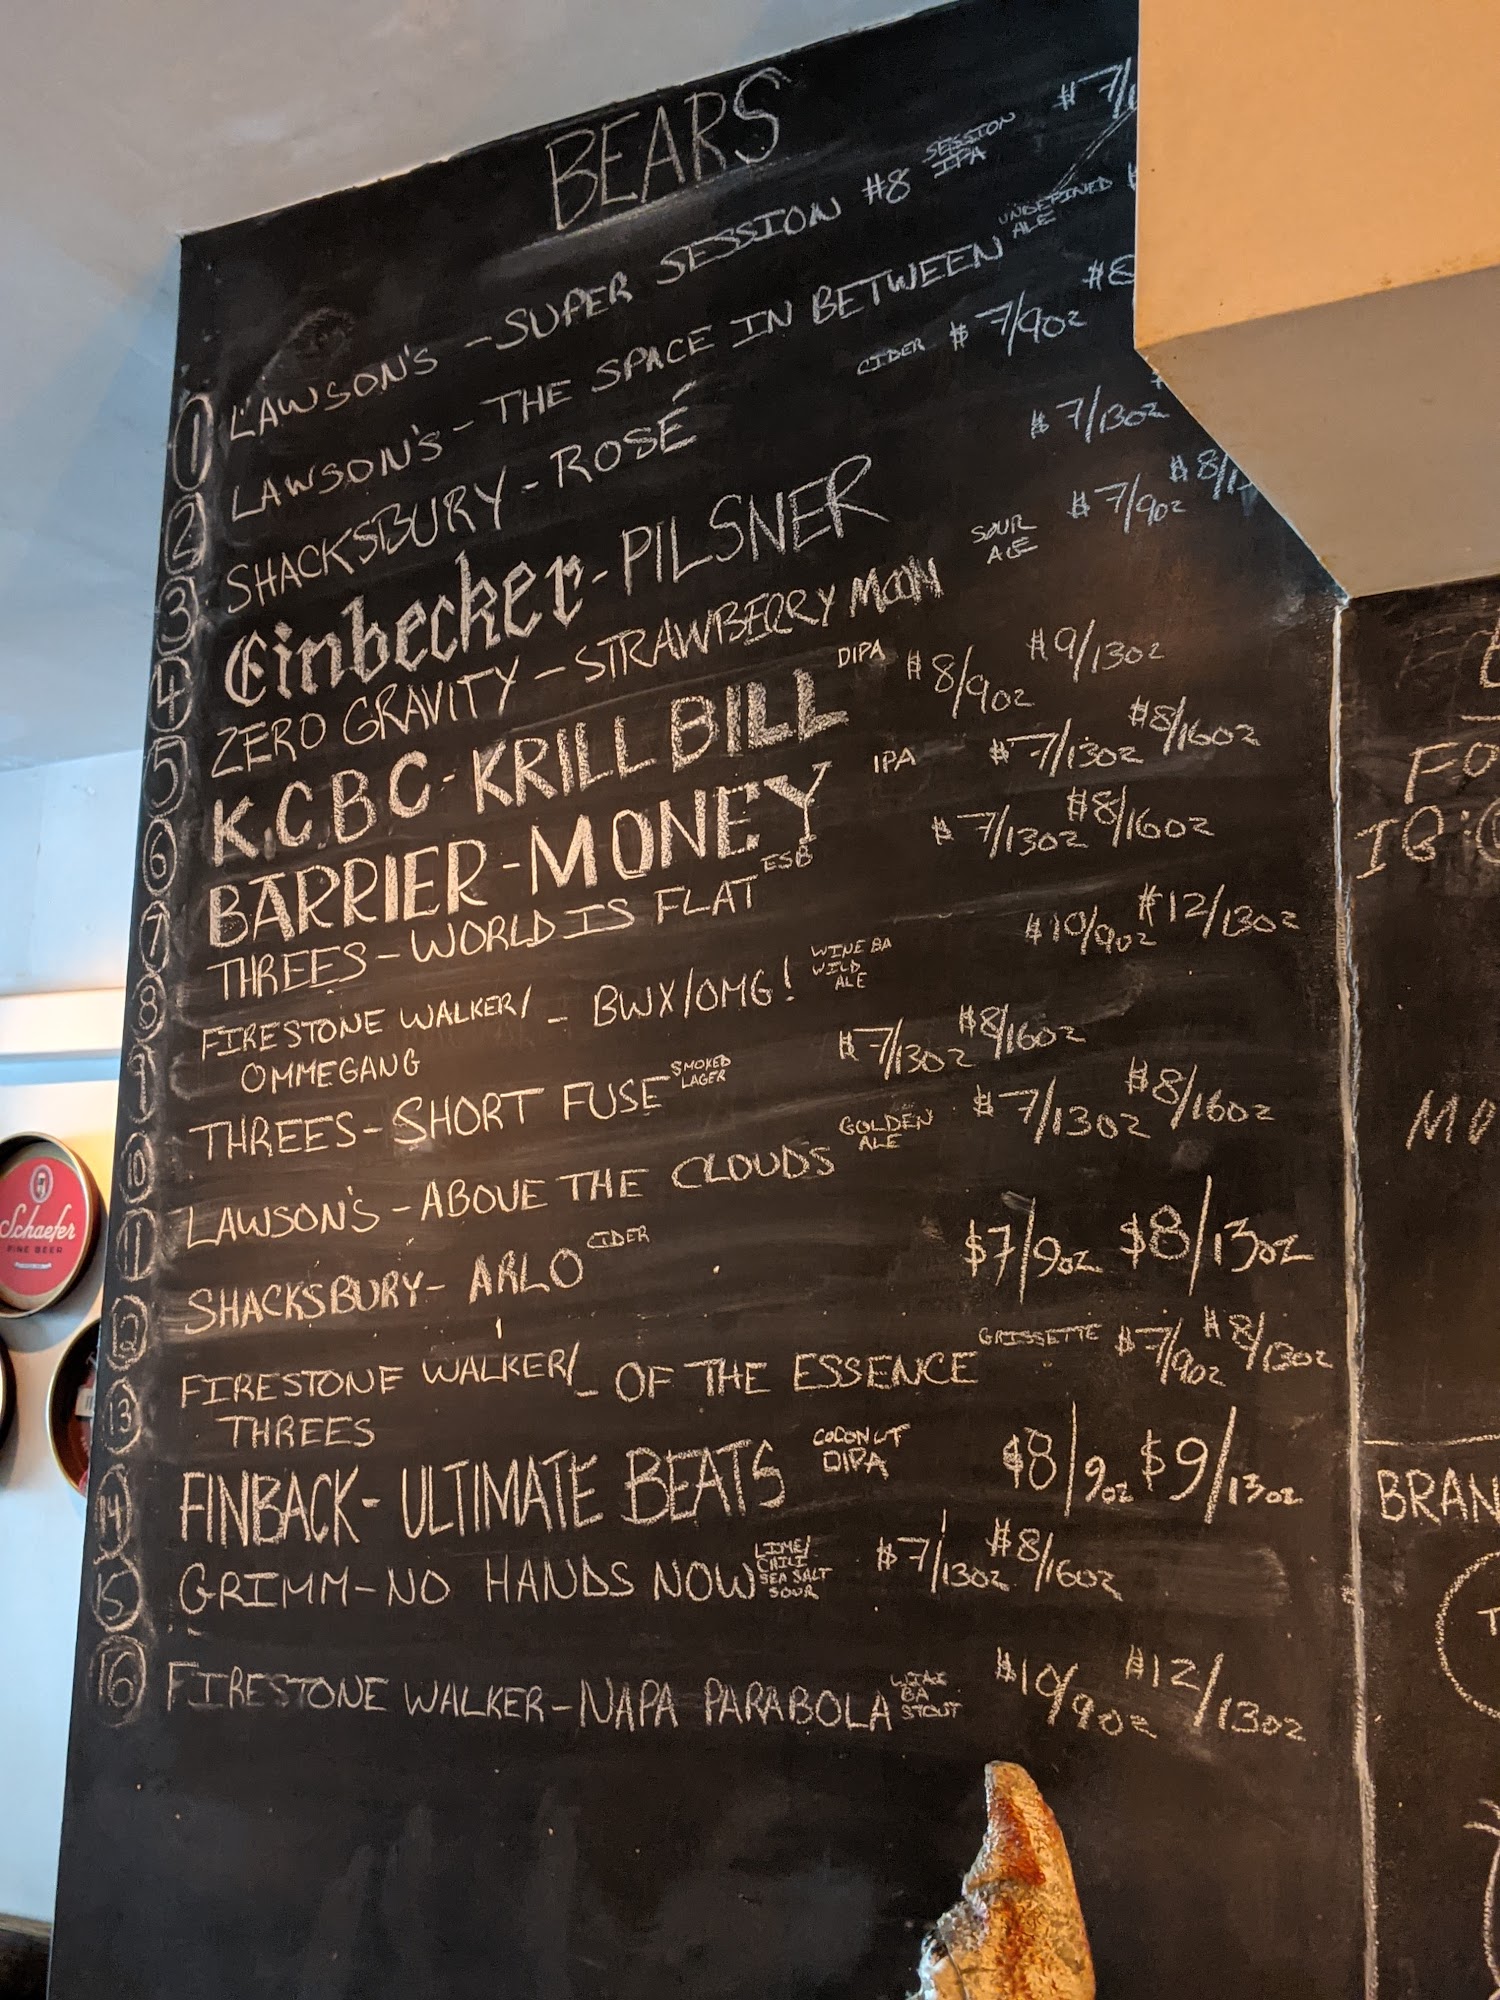 BEARS
1 LAWSON'S - SUPER SESSION #8 SESSION IPA $7/
2 LAWSON'S - THE SPACE IN BETWEEN UNDEFINED ALE
3 SHACKSBURY - ROSÉ CIDER $7/9oz $8
4 Einbecker - PILSNER $7/13oz
5 ZERO GRAVITY - STRAWBERRY MOON SOUR ALE $7/9oz $8/1
6 K.C.B.C - KRILL BILL DIPA $8/9oz $9/13oz
7 BARRIER - MONEY IPA $7/13oz $8/16oz
8 THREES - WORLD IS FLAT ESB $7/13oz $8/16oz
9 FIRESTONE WALKER/ - BWX/OMG! WINE BA WILD ALE $10/9oz $12/13oz
OMMEGANG
10 THREES - SHORT FUSE SMOKED LAGER $7/13oz $8/16oz
11 LAWSON'S - ABOVE THE CLOUDS GOLDEN ALE $7/13oz $8/16oz
12 SHACKSBURY - ARLO CIDER $7/9oz $8/13oz
13 FIRESTONE WALKER/ - OF THE ESSENCE GRISSETTE $7/9oz $8/13oz
THREES
14 FINBACK - ULTIMATE BEATS COCONUT DIPA $8/9oz $9/13oz
15 GRIMM - NO HANDS NOW LIME/ CHILI SEA SALT SOUR $7/13oz $8/16oz
16 FIRESTONE WALKER - NAPA PARABOLA BA STOUT $10/9oz $12/13oz
FO
IG:@
MO
BRAN
T
Schaefer
FINE BEER